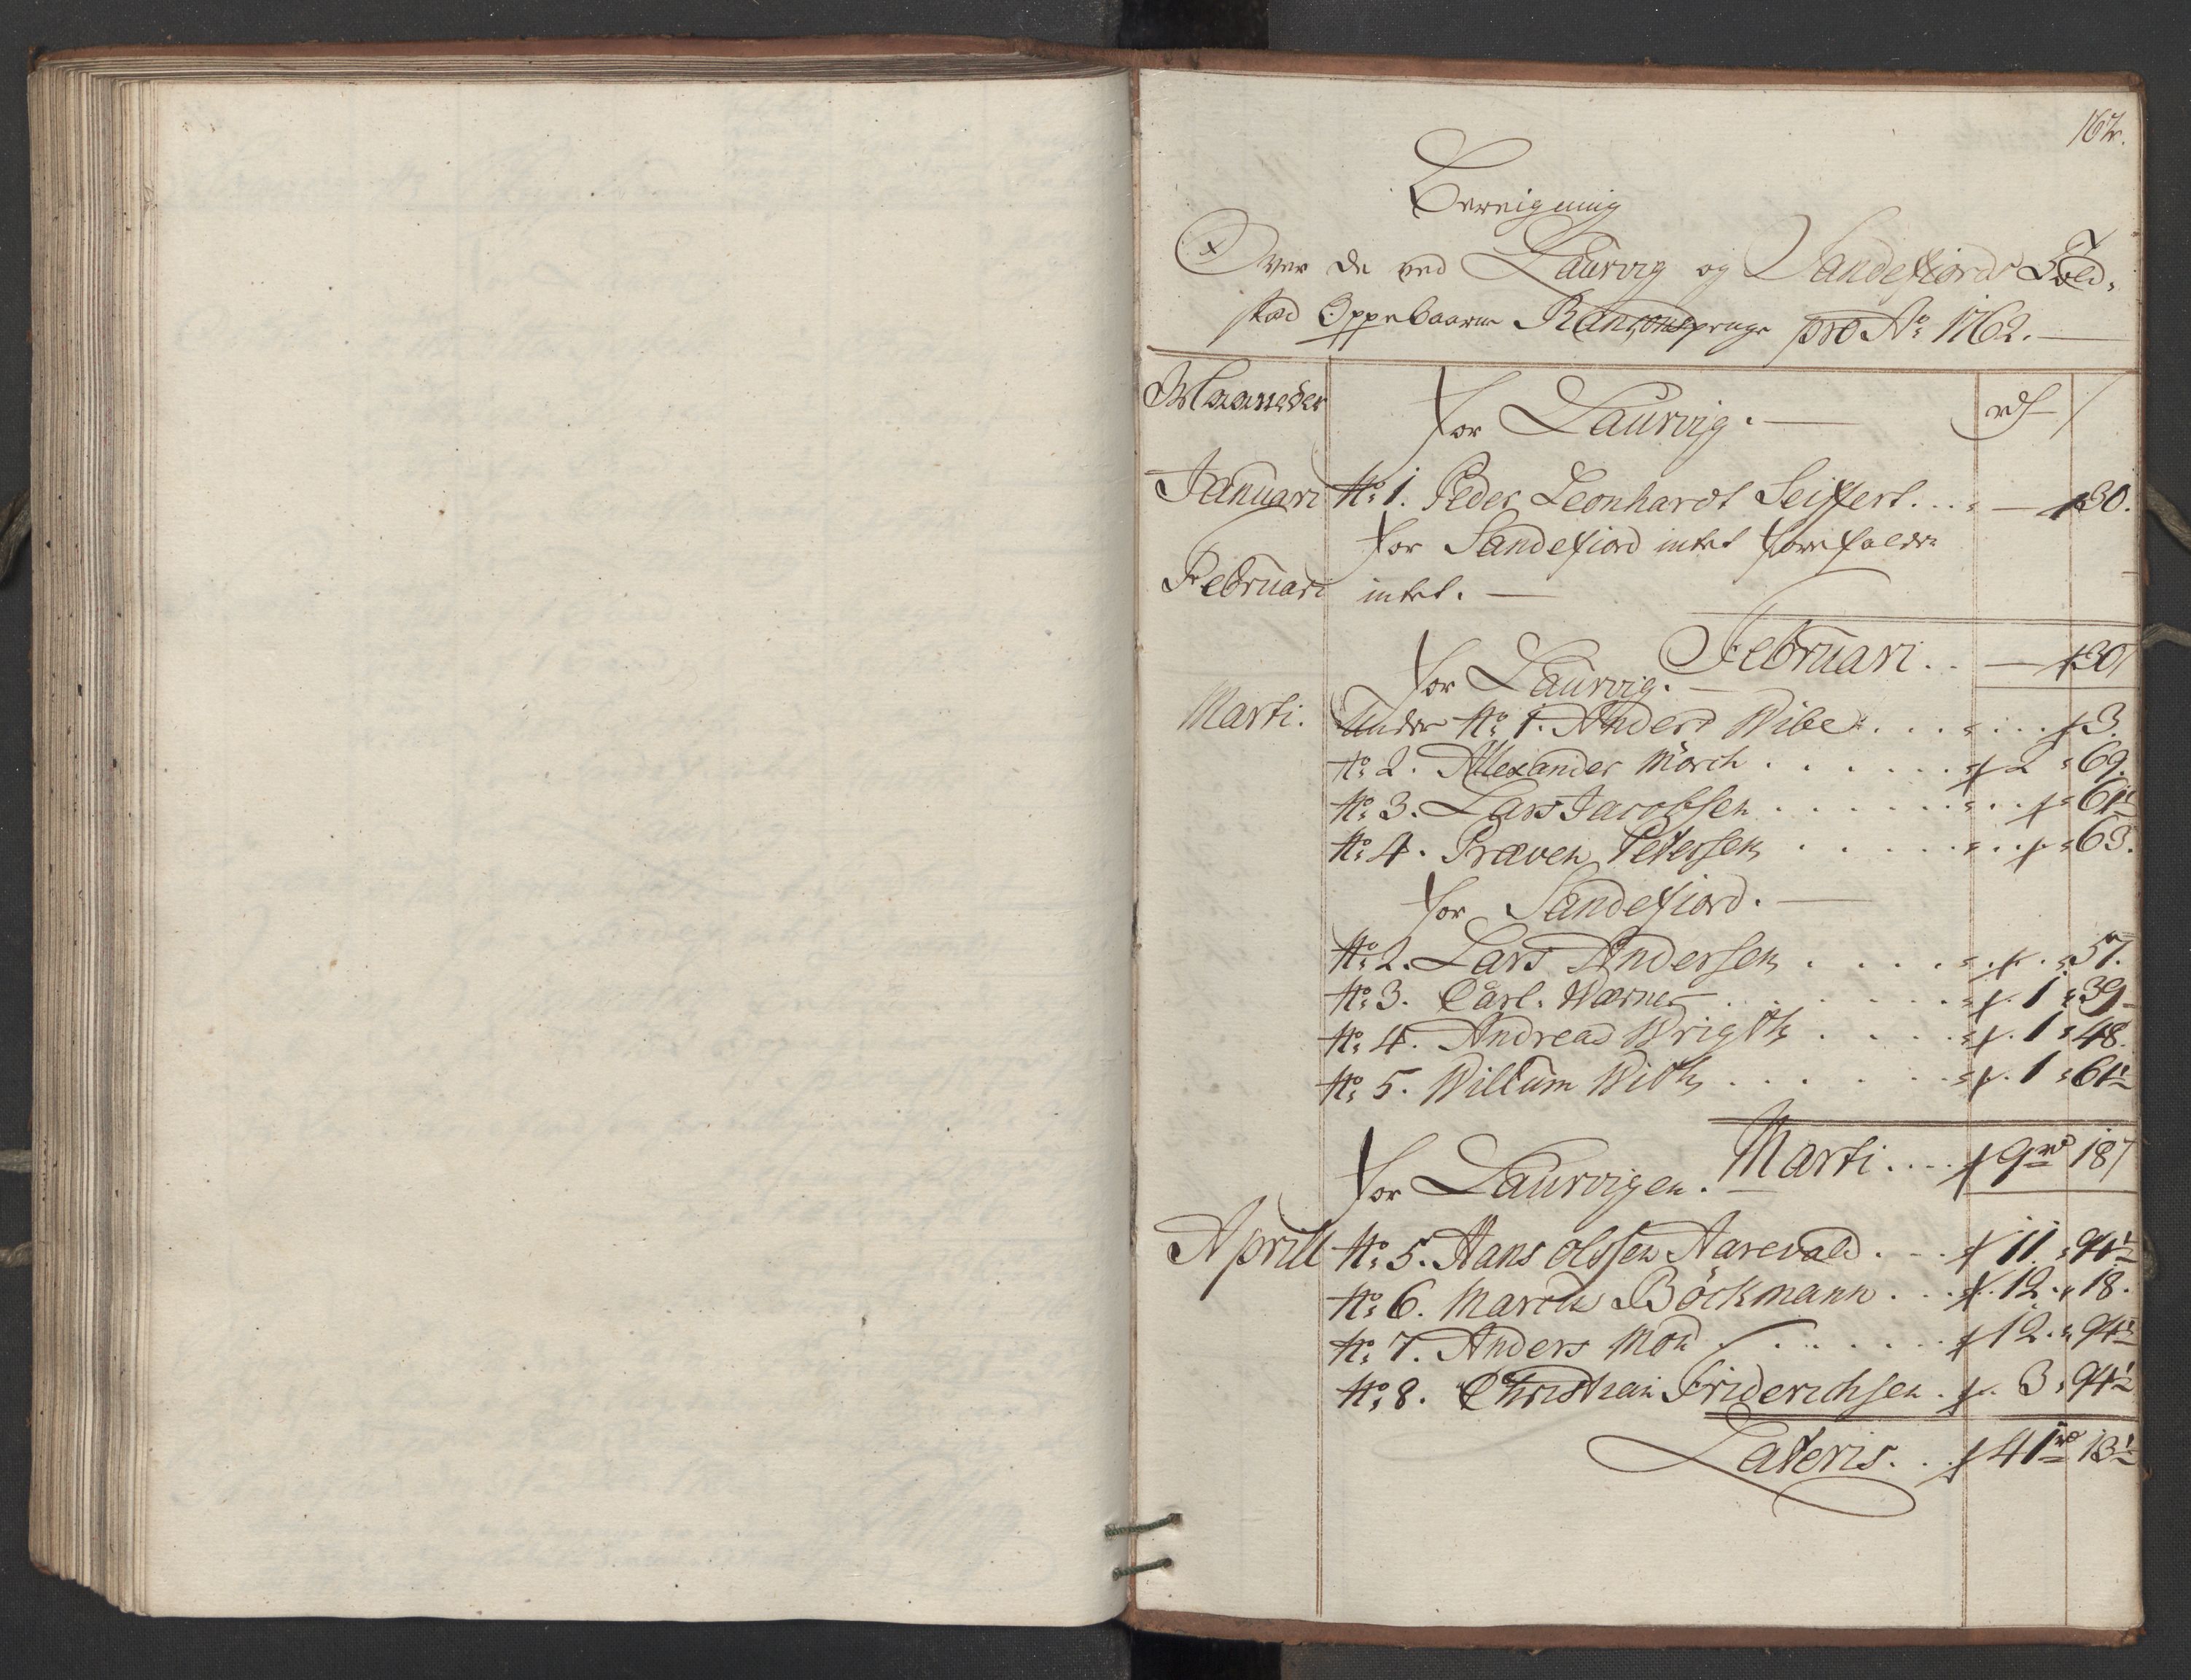 167.
Bereigning
Over de ved Laurvig og Sandefiords Told,
stæd Oppebaarne Ransonspenge pro Ao: 1762.
Maaneder for Laurvig. rd ß
Januari No: 1. Peder Leonhardt Seiffert... - 30.
for Sandefiord intet forefalden
Februari intet.
Februari.. - 30
for Laurvig.
Marti. Under No: 1. Anders Wibe.... 3.
No: 2. Allexander Mörch...... 2 69.
No: 3. Lars Jacobsen...... 61½
No: 4. Præven Petersen..... 63.
for Sandefiord.
No: 2. Lars Andersen..... 57.
No: 3. Carl. Wærner...... 1 39
No: 4. Andreas Wrigth..... 1 48.
No: 5. Willum With...... 1 61½
Marti.... 9rd 187
for Laurvigen.
Aprill No: 5. Hans Olssen Aarevald... 11 94½
No: 6. Marcus Böckmann... 12. 18.
No: 7. Anders Mou...... 12. 94½
No: 8. Christian Friderichsen. 3. 94½
Lateris.. 41rd 13½